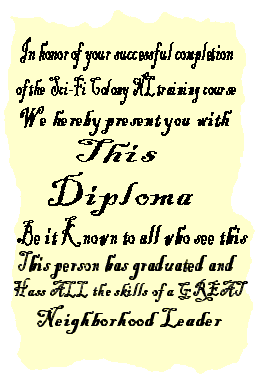 In honor of your successful completion
of the Sci-Fi Colony NL training course
We hereby present you with
This
Diploma
Be it Known to all who see this
This person has graduated and
Hass ALL the skills of a GREAT
Neighborhood Leader